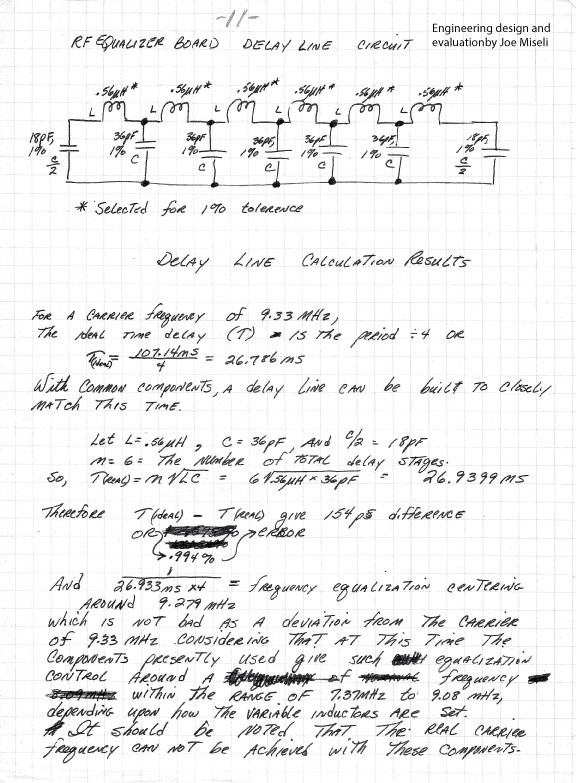 -11-
Engineering design and
evaluationby Joe Miseli
RF EQUALIZER BOARD DELAY LINE CIRCUIT
.56µH* .56µH* .56µH* .56µH* .56µH* .56µH*
L L L L L L
18pF, 36pF 36pF 36pF, 36pF 36pF, 18pF,
1% 1% 1% 1% 1% 1% 1%
C/2 C C C C C C/2
* Selected for 1% tolerence
DELAY LINE CALCULATION RESULTS
FOR A CARRIER frequency of 9.33 MHz,
The ideal Time delay (T) IS The period ÷ 4 OR
T(ideal) = 107.14ms/4 = 26.786 ms
With Common components, a delay Line can be built To closely
MATCH This TIME.
Let L = .56µH, C = 36pF, And C/2 = 18pF
m = 6 = The Number of TOTAL delay STAGES.
So, T(REAL) = m√LC = 6√.56µH × 36pF = 26.9399 ms
Therefore T(ideal) - T(REAL) give 154ps difference
OR ERROR
.994%
1
And 26.933ms x4 = frequency equalization centering
AROUND 9.279 MHz
which is NOT bad AS A deviation from The CARRIER
of 9.33 MHz CONSIDERING That AT This Time The
Components presently used give such equalization
CONTROL AROUND A frequency
within The RANGE OF 7.37MHz to 9.08 MHz,
depending upon how The VARIABLE inductors ARE Set.
* It should be NOTED That The REAL CARRIER
frequency CAN NOT be Achieved with These components.